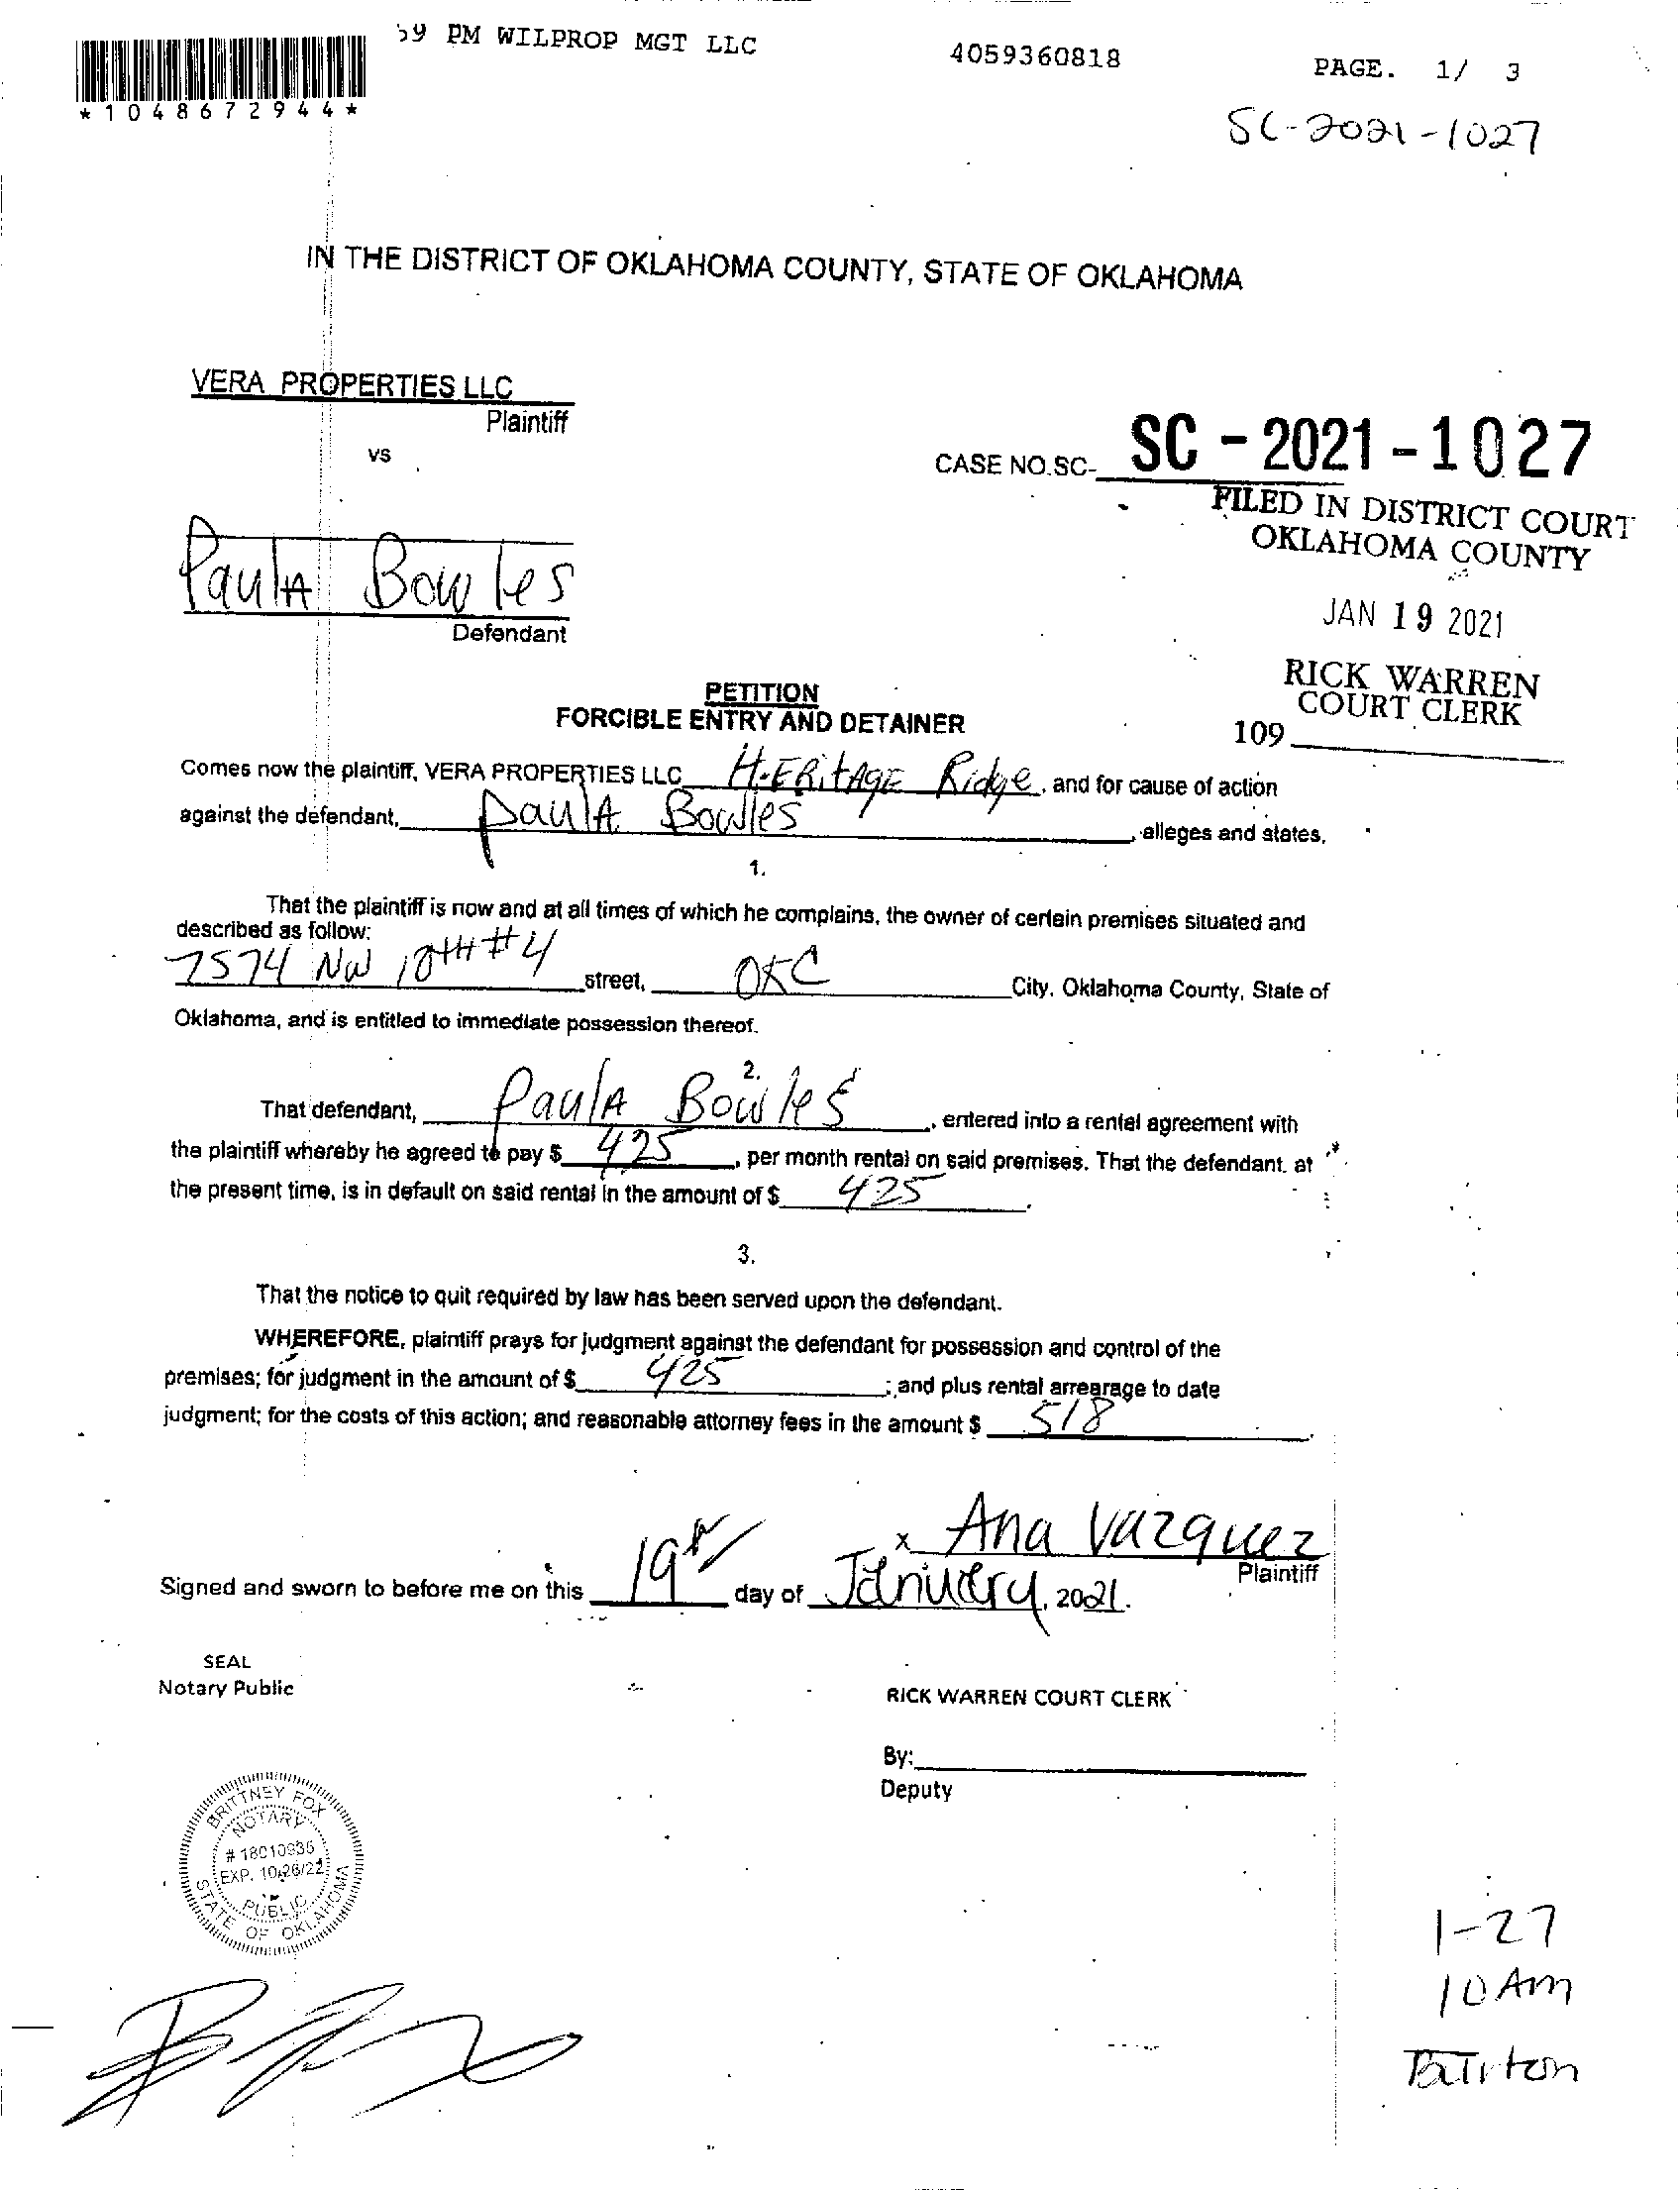 59 PM WILPROP MGT LLC 4059360818 PAGE. 1/ 3
*1048672944*
SC-2021-1027
IN THE DISTRICT OF OKLAHOMA COUNTY, STATE OF OKLAHOMA
VERA PROPERTIES LLC
Plaintiff
vs
CASE NO.SC- SC-2021-1027
FILED IN DISTRICT COURT
OKLAHOMA COUNTY
Paula Bowles
Defendant
JAN 19 2021
RICK WARREN
COURT CLERK
109
PETITION
FORCIBLE ENTRY AND DETAINER
Comes now the plaintiff, VERA PROPERTIES LLC HERitAGE Ridge, and for cause of action
against the defendant, PaulA Bowles, alleges and states,
1.
That the plaintiff is now and at all times of which he complains, the owner of certain premises situated and
described as follow:
7574 NW 10TH #4 street, OKC City, Oklahoma County, State of
Oklahoma, and is entitled to immediate possession thereof.
2.
That defendant, PaulA Bowles, entered into a rental agreement with
the plaintiff whereby he agreed to pay $ 425, per month rental on said premises. That the defendant, at
the present time, is in default on said rental in the amount of $ 425.
3.
That the notice to quit required by law has been served upon the defendant.
WHEREFORE, plaintiff prays for judgment against the defendant for possession and control of the
premises; for judgment in the amount of $ 425; and plus rental arrearage to date
judgment; for the costs of this action; and reasonable attorney fees in the amount $ 518.
x Ana Vazquez
Plaintiff
Signed and sworn to before me on this 19th day of January, 2021.
SEAL
Notary Public
RICK WARREN COURT CLERK
By:
Deputy
BRITTNEY FOX
NOTARY
# 18010936
EXP. 10/26/22
PUBLIC
STATE OF OKLAHOMA
1-27
10 Am